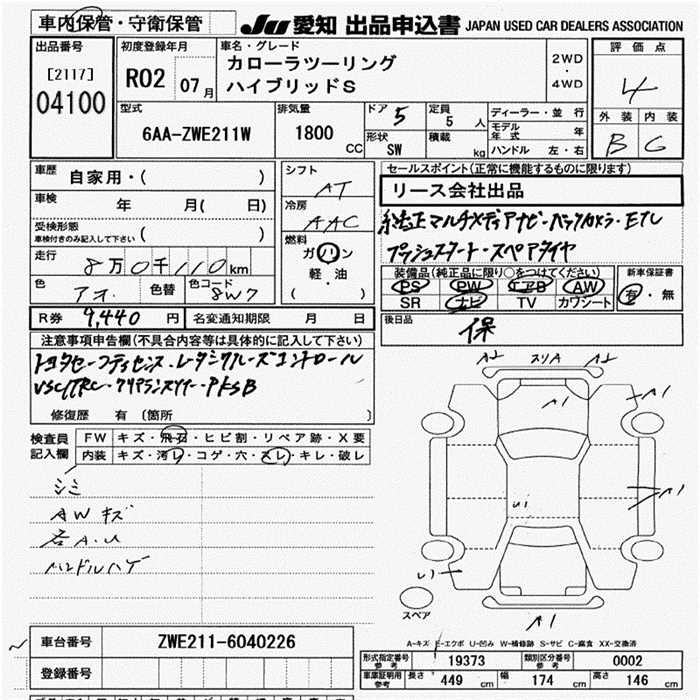 車内保管・守衛保管
JU 愛知 出品申込書 JAPAN USED CAR DEALERS ASSOCIATION
出品番号
[2117]
04100
初度登録年月
R02 07月
車名・グレード
カローラツーリング
ハイブリッドS
2WD
・
4WD
評価点
4
外装 内装
B C
型式
6AA-ZWE211W
排気量
1800 CC
ドア 5
形状 SW
定員 5 人
積載 kg
ディーラー・並行
モデル年式 年
ハンドル 左・右
車歴 自家用・( )
車検 年 月( 日)
受検形態
車検付きのみ記入して下さい ( )
走行 8万0千110km
色 アオ. 色替 色コード 8W7
シフト AT
冷房 AAC
燃料 ガソリン
軽・油
( )
セールスポイント(正常に機能するものに限ります)
リース会社出品
純正マルチメディアナビ・バックカメラ・ETC
プッシュスタート・スペアタイヤ
装備品(純正品に限り○をつけてください)
PS PW エアB AW
SR ナビ TV カワシート
新車保証書
有・無
R券 9,440 円 名変通知期限 月 日
後日品 保
注意事項申告欄(不具合内容等は具体的に記入して下さい)
トヨタセーフティセンス・レーダークルーズコントロール
VSC/TRC・クリアランスソナー・PKSB
修復歴 有〔箇所 〕
検査員記入欄
FW キズ・飛石・ヒビ割・リペア跡・X要
内装 キズ・汚レ・コゲ・穴・スレ・キレ・破レ
シミ
AWキズ
各A.U
ハンドルハゲ
A2 スリA A2
A1
A1
A1
U1
U1
スペア
A1
A-キズ E-エクボ U-凹み W-補修跡 S-サビ C-腐食 XX-交換済
車台番号 ZWE211-6040226
登録番号
形式指定番号 参考 19373 類別区分番号 参考 0002
車庫証明用 参考 長さ 449 cm 幅 174 cm 高さ 146 cm